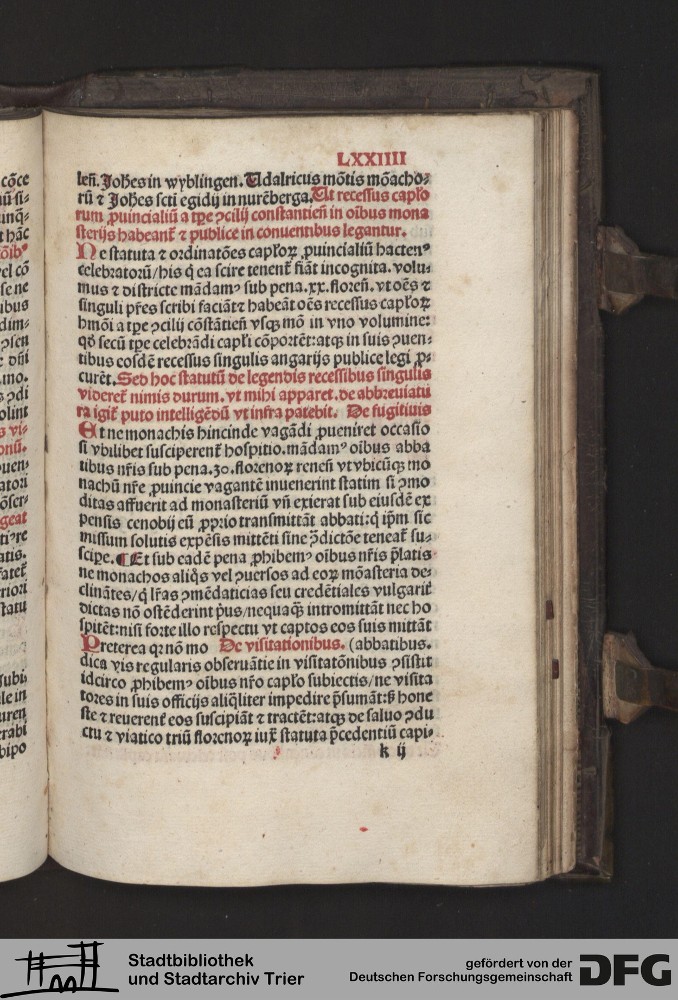 LXXIIII
leñ. Joh̃es in wyblingen. Udalricus mõtis mõacho⸗
rũ ⁊ Joh̃es scti egidij in nurẽberga. Ut recessus cap̃lo
rum ꝓuincialiũ a tp̃e ↄcilij constantieñ in oĩbus mona
sterijs habeant̃ ⁊ publice in conuentibus legantur.
Ne statuta ⁊ ordinatões cap̃loꝝ ꝓuincialiũ hacten⁹
celebratorũ/his q̃ ea scire tenent̃ fiãt incognita. volu⸗
mus ⁊ districte mãdam⁹ sub pena .xx. floreñ. vt oẽs ⁊
singuli pr̃es scribi faciãt ⁊ habeãt oẽs recessus cap̃loꝝ
hm̃oi a tp̃e ↄcilij cõstãtieñ vsqꝫ mõ in vno volumine:
qð secũ tp̃e celebrãdi cap̃li cõportẽt: atqꝫ in suis ↄuen⸗
tibus eosdẽ recessus singulis angarijs publice legi ꝓ⸗
curẽt. Sed hoc statutũ de legendis recessibus singulis
videret̃ nimis durum. vt mihi apparet. de abbreuiatu
ra igit̃ puto intelligẽdũ vt infra patebit. De fugitiuis
Et ne monachis hincinde vagãdi ꝓueniret occasio
si vbilibet susciperent̃ hospitio. mãdam⁹ oĩbus abba
tibus nr̃is sub pena .30. florenoꝝ reneñ vt vbicũqꝫ mo
nachũ nr̃e ꝓuincie vagantẽ inuenerint statim si ↄmo
ditas affuerit ad monasteriũ vñ exierat sub eiusdẽ ex
pensis cenobij eũ ꝓprio transmittãt abbati: q̃ ip̃m sic
missum solutis expẽsis mittẽti sine ↄ̃dictõe teneat̃ su⸗
scip̃e. ¶ Et sub eadẽ pena ꝓhibem⁹ oĩbus nr̃is p̃latis
ne monachos aliq̃s vel ↄuersos ad eoꝝ mõasteria de⸗
clinãtes/q̃ lr̃as ↄmẽdaticias seu credẽtiales vulgarit̃
dictas nõ ostẽderint p̃us/nequaq̃ꝫ intromittãt nec ho
spitẽt: nisi forte illo respectu vt captos eos suis mittãt
Preterea qr nõ mo De visitationibus. (abbatibus.
dica vis regularis obseruãtie in visitatõnibus ↄsistit
idcirco ꝓhibem⁹ oĩbus nr̃o cap̃lo subiectis/ne visita
tores in suis officijs aliq̃liter impedire p̃sumãt: sꝫ hone
ste ⁊ reuerent̃ eos suscipiãt ⁊ tractẽt: atqꝫ de saluo ↄdu
ctu ⁊ viatico triũ florenoꝝ iux̃ statuta p̃cedentiũ capi⸗
k ij
Stadtbibliothek
und Stadtarchiv Trier
gefördert von der
Deutschen Forschungsgemeinschaft
DFG